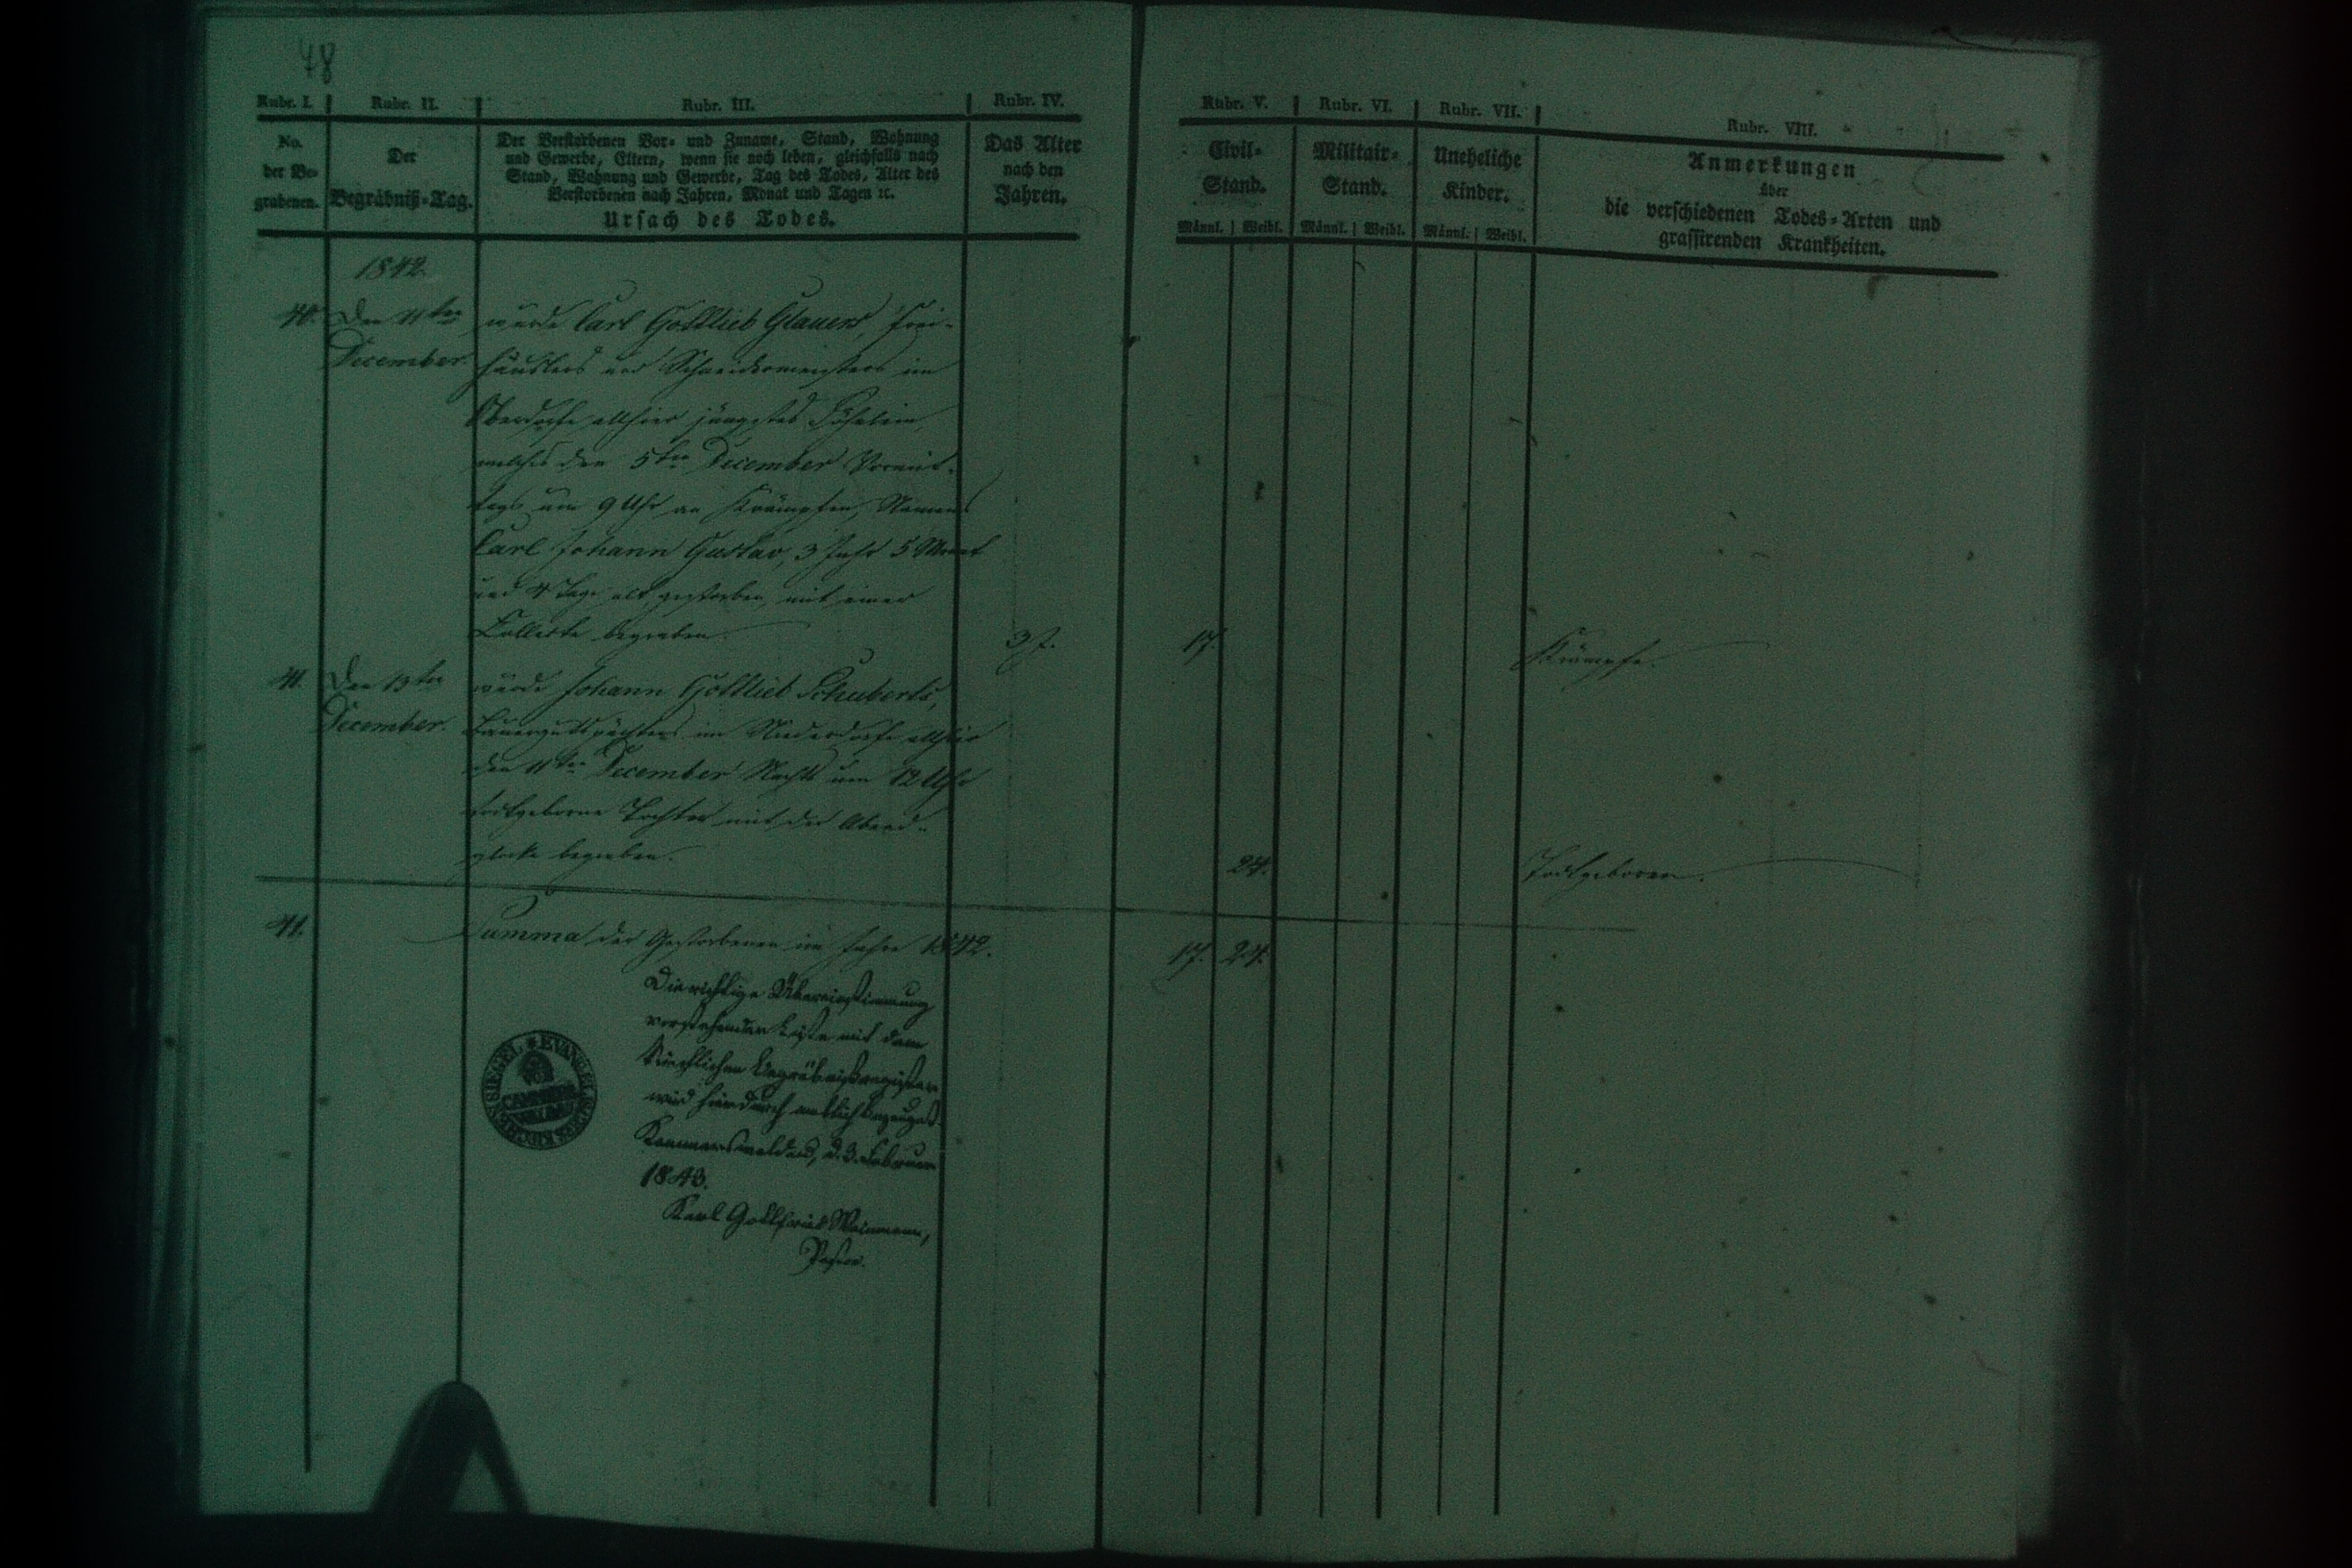 48
Rubr. I. Rubr. II. Rubr. III. Rubr. IV. Rubr. V. Rubr. VI. Rubr. VII. Rubr. VIII.
No. der Begrabenen.
Der Begräbniß-Tag.
Der Verstorbenen Vor- und Zuname, Stand, Wohnung
und Gewerbe, Eltern, wenn sie noch leben, gleichfalls nach
Stand, Wohnung und Gewerbe, Tag des Todes, Alter des
Verstorbenen nach Jahren, Monat und Tagen ꝛc.
Ursach des Todes.
Das Alter
nach den
Jahren.
Civil-
Stand.
Männl. Weibl.
Militair-
Stand.
Männl. Weibl.
Uneheliche
Kinder.
Männl. Weibl.
Anmerkungen
über
die verschiedenen Todes-Arten und
grassirenden Krankheiten.
1842.
40. Den 11ten wurde Carl Gottlieb Glauers, Frei-
December. häuslers und Schneidermeisters im
Oberdorfe allhier jüngstes Söhnlein,
welches den 5ten December Vormit-
tags um 9 Uhr an Krämpfen, Namens
Carl Johann Gustav, 3 Jahr 5 Monat
und 4 Tage alt gestorben, mit einer
Collecte begraben. 3 J. 17. Krämpfe.
41. Den 13ten wurde Johann Gottlieb Schuberts,
December. Bauergutspächters im Niederdorfe allhier
den 11ten December Nachts um 12 Uhr
todtgeborne Tochter mit der Abend-
glocke begraben. 24. Todtgeboren.
41. Summa der Gestorbenen im Jahre 1842. 17. 24.
Die richtige Übereinstimmung
vorstehender Liste mit dem
kirchlichen Begräbnißregister
wird hierdurch amtlich bezeugt.
Kammerswaldau, d. 3. Februar
1843.
Karl Gottfried
Pastor.